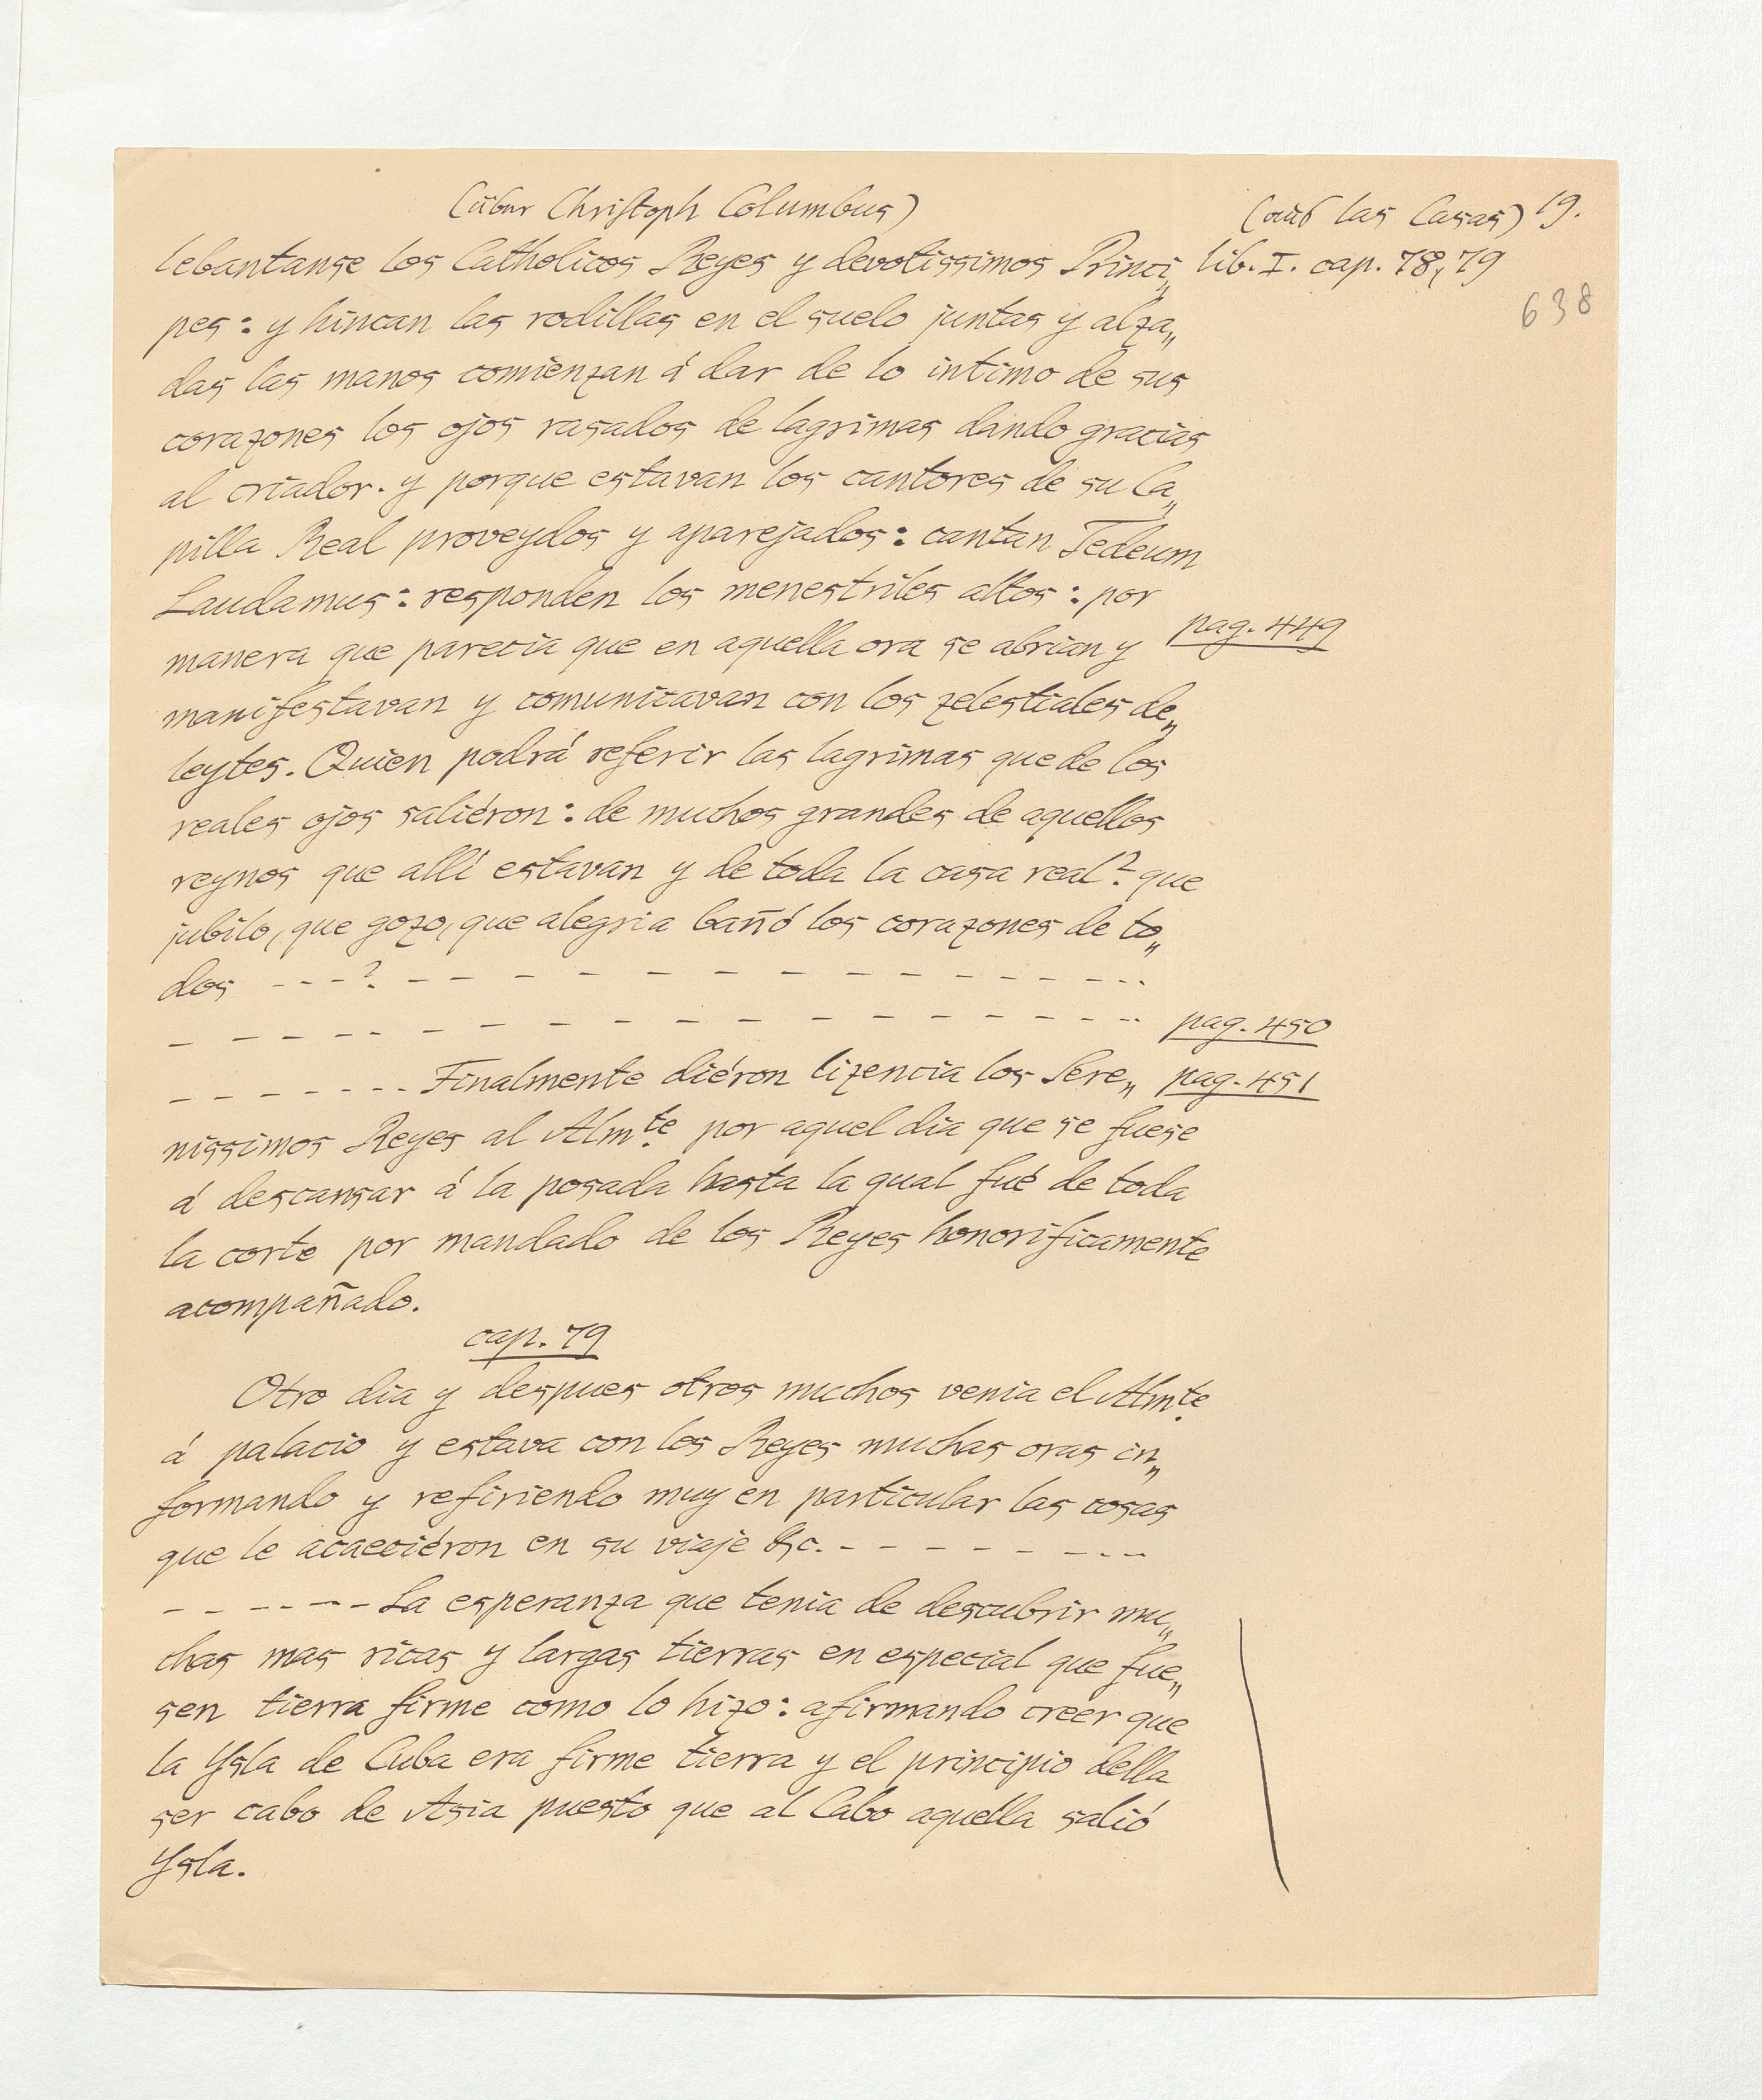 (über Christoph Columbus)
(aus las Casas) 19.
lebantanse los Catholicos Reyes y devotissimos Princi„ lib. I. cap. 78, 79
638
pes: y hincan las rodillas en el suelo juntas y alza„
das las manos comienzan á dar de lo intimo de sus
corazones los ojos rasados de lagrimas dando gracias
al criador. y porque estavan los cantores de su Ca„
pilla Real proveydos y aparejados: cantan Tedeum
Laudamus: responden los menestriles altos: por
manera que parecia que en aquella ora se abrian y pag. 449
manifestavan y comunicavan con los zelestiales de„
leytes. Quien podrá referir las lagrimas que de los
reales ojos saliéron: de muchos grandes de aquellos
reynos que allí estavan y de toda la casa real? que
jubilo, que gozo, que alegria bañó los corazones de to„
dos - - - ? - - - - - - - - - - - - - -
- - - - - - - - - - - - - - - - - pag. 450
- - - - - - - - Finalmente diéron lizencia los Sere„ pag. 451
nissimos Reyes al Almte. por aquel dia que se fuese
á descansar á la posada hasta la qual fué de toda
la corte por mandado de los Reyes honorificamente
acompañado.
cap. 79
Otro dia y despues otros muchos venia el Almte.
á palacio y estava con los Reyes muchas oras in„
formando y refiriendo muy en particular las cosas
que le acaeciéron en su viaje &c. - - - - - - - - -
- - - - - - - La esperanza que tenia de descubrir mu„
chas mas ricas y largas tierras en especial que fue„
sen tierra firme como lo hizo: afirmando creer que
la Ysla de Cuba era firme tierra y el principio della
ser cabo de Asia puesto que al Cabo aquella salió
Ysla.